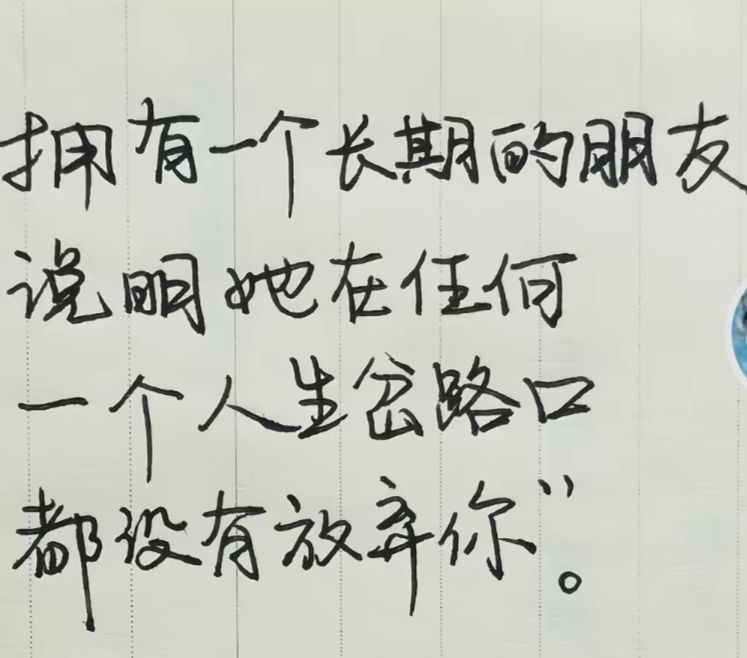 拥有一个长期的朋友
说明她在任何
一个人生岔路口
都没有放弃你”。